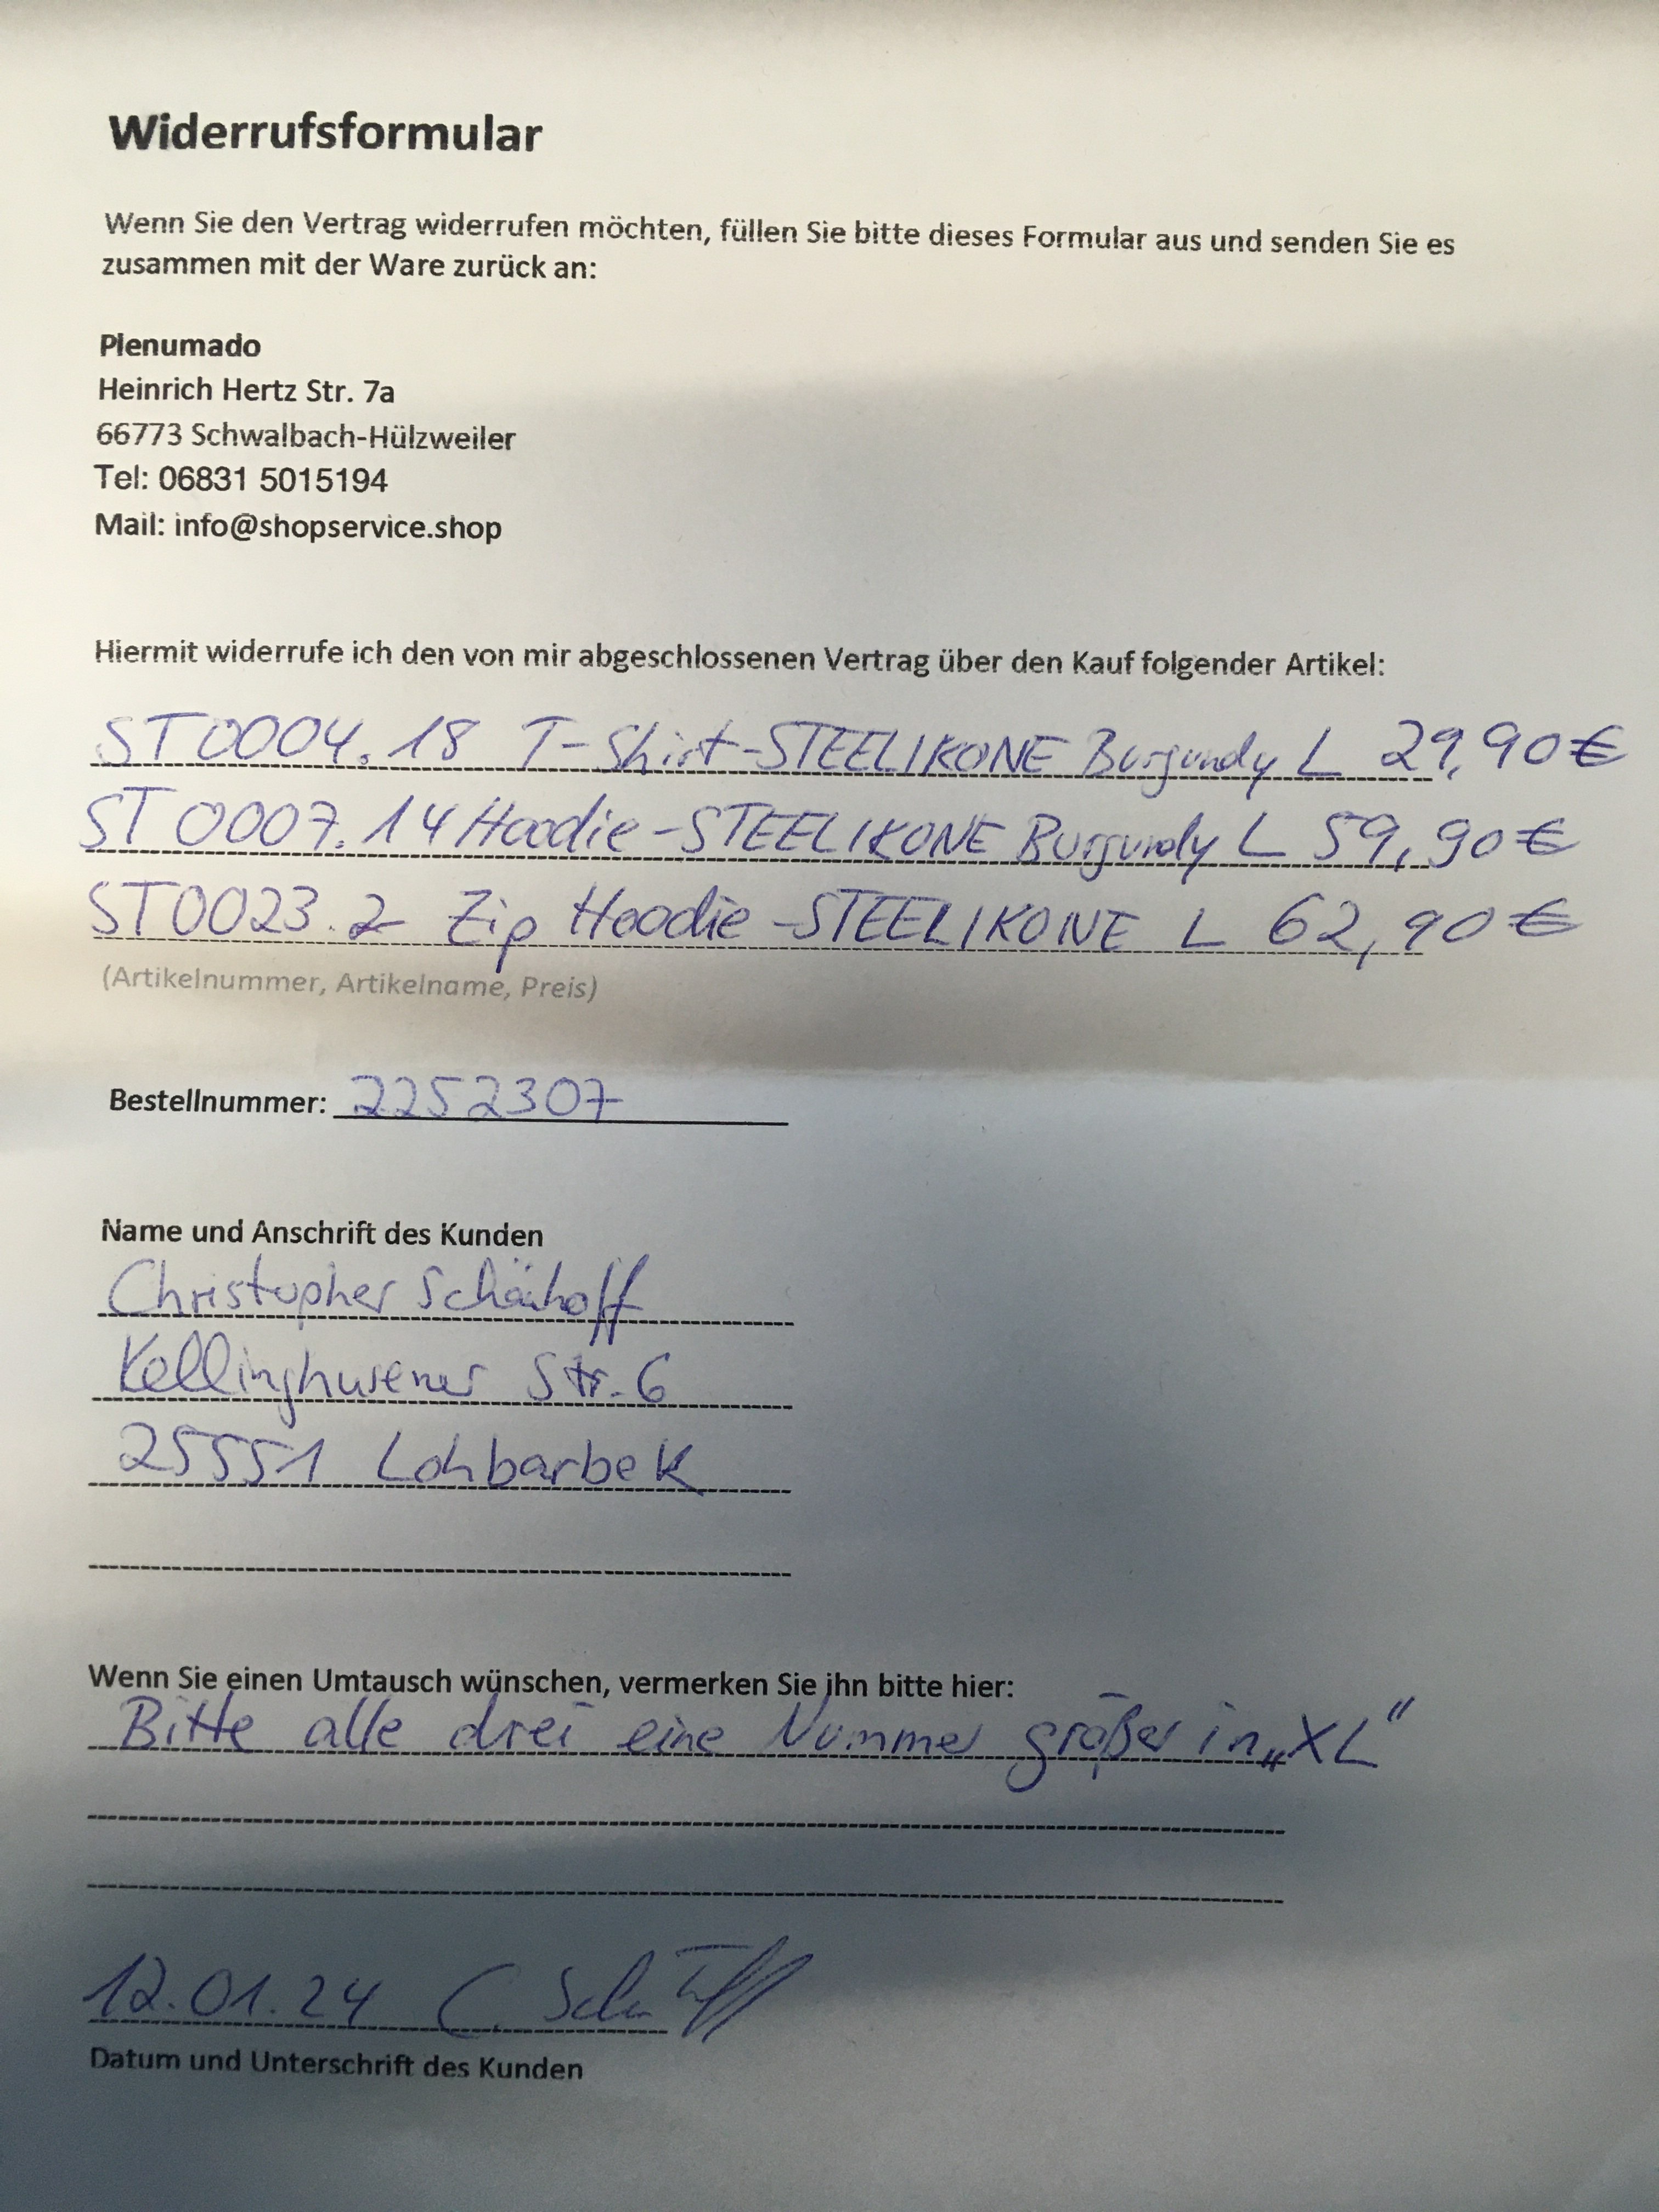 Widerrufsformular
Wenn Sie den Vertrag widerrufen möchten, füllen Sie bitte dieses Formular aus und senden Sie es
zusammen mit der Ware zurück an:
Plenumado
Heinrich Hertz Str. 7a
66773 Schwalbach-Hülzweiler
Tel: 06831 5015194
Mail: info@shopservice.shop
Hiermit widerrufe ich den von mir abgeschlossenen Vertrag über den Kauf folgender Artikel:
ST0004.18 T-Shirt-STEELIKONE Burgundy L 29,90€
ST0007.14 Hoodie-STEELIKONE Burgundy L 59,90€
ST0023.2 Zip Hoodie-STEELIKONE L 62,90€
(Artikelnummer, Artikelname, Preis)
Bestellnummer: 2252307
Name und Anschrift des Kunden
Christopher
Kellinghusener Str. 6
25551 Lohbarbek
Wenn Sie einen Umtausch wünschen, vermerken Sie ihn bitte hier:
Bitte alle drei eine Nummer größer in „XL“
12.01.24 C.
Datum und Unterschrift des Kunden